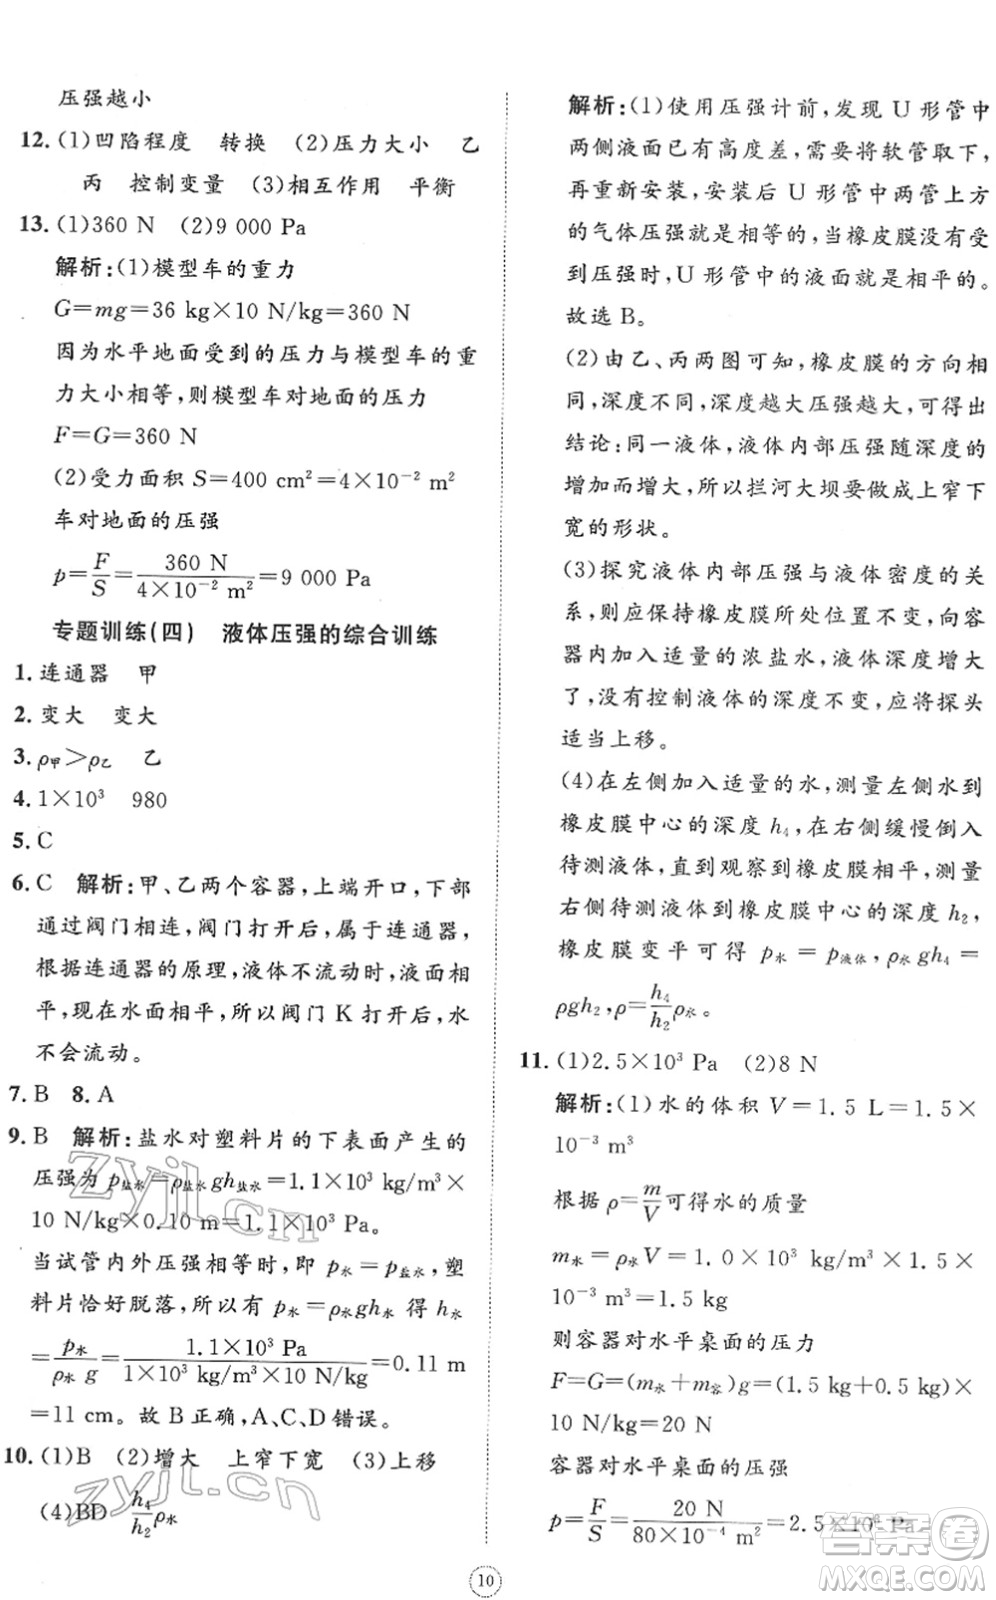 压强越小
12. (1)凹陷程度 转换 (2)压力大小 乙
丙 控制变量 (3)相互作用 平衡
13. (1)360 N (2)9 000 Pa
解析:(1)模型车的重力
G=mg=36 kg×10 N/kg=360 N
因为水平地面受到的压力与模型车的重
力大小相等,则模型车对地面的压力
F=G=360 N
(2)受力面积 S=400 cm²=4×10⁻² m²
车对地面的压强
p=F/S=360 N/(4×10⁻² m²)=9 000 Pa
专题训练(四) 液体压强的综合训练
1. 连通器 甲
2. 变大 变大
3. ρ甲>ρ乙 乙
4. 1×10³ 980
5. C
6. C 解析:甲、乙两个容器,上端开口,下部
通过阀门相连,阀门打开后,属于连通器,
根据连通器的原理,液体不流动时,液面相
平,现在水面相平,所以阀门 K 打开后,水
不会流动。
7. B 8. A
9. B 解析:盐水对塑料片的下表面产生的
压强为 p盐水=ρ盐水gh盐水=1.1×10³ kg/m³×
10 N/kg×0.10 m=1.1×10³ Pa。
当试管内外压强相等时,即 p水=p盐水,塑
料片恰好脱落,所以有 p水=ρ水gh水 得 h水
=p水/(ρ水 g)=1.1×10³ Pa/(1×10³ kg/m³×10 N/kg)=0.11 m
=11 cm。故 B 正确,A、C、D 错误。
10. (1)B (2)增大 上窄下宽 (3)上移
(4)BD h₄/h₂ρ水
解析:(1)使用压强计前,发现 U 形管中
两侧液面已有高度差,需要将软管取下,
再重新安装,安装后 U 形管中两管上方
的气体压强就是相等的,当橡皮膜没有受
到压强时,U 形管中的液面就是相平的。
故选 B。
(2)由乙、丙两图可知,橡皮膜的方向相
同,深度不同,深度越大压强越大,可得出
结论:同一液体,液体内部压强随深度的
增加而增大,所以拦河大坝要做成上窄下
宽的形状。
(3)探究液体内部压强与液体密度的关
系,则应保持橡皮膜所处位置不变,向容
器内加入适量的浓盐水,液体深度增大
了,没有控制液体的深度不变,应将探头
适当上移。
(4)在左侧加入适量的水,测量左侧水到
橡皮膜中心的深度 h₄,在右侧缓慢倒入
待测液体,直到观察到橡皮膜相平,测量
右侧待测液体到橡皮膜中心的深度 h₂,
橡皮膜变平可得 p水=p液体,ρ水gh₄=
ρgh₂,ρ=h₄/h₂ρ水。
11. (1)2.5×10³ Pa (2)8 N
解析:(1)水的体积 V=1.5 L=1.5×
10⁻³ m³
根据 ρ=m/V可得水的质量
m水=ρ水V=1.0×10³ kg/m³×1.5×
10⁻³ m³=1.5 kg
则容器对水平桌面的压力
F=G=(m水+m容)g=(1.5 kg+0.5 kg)×
10 N/kg=20 N
容器对水平桌面的压强
p=F/S=20 N/(80×10⁻⁴ m²)=2.5×10³ Pa
10
zyjl.cn
zyjl.cn
答案圈
MXQE.COM